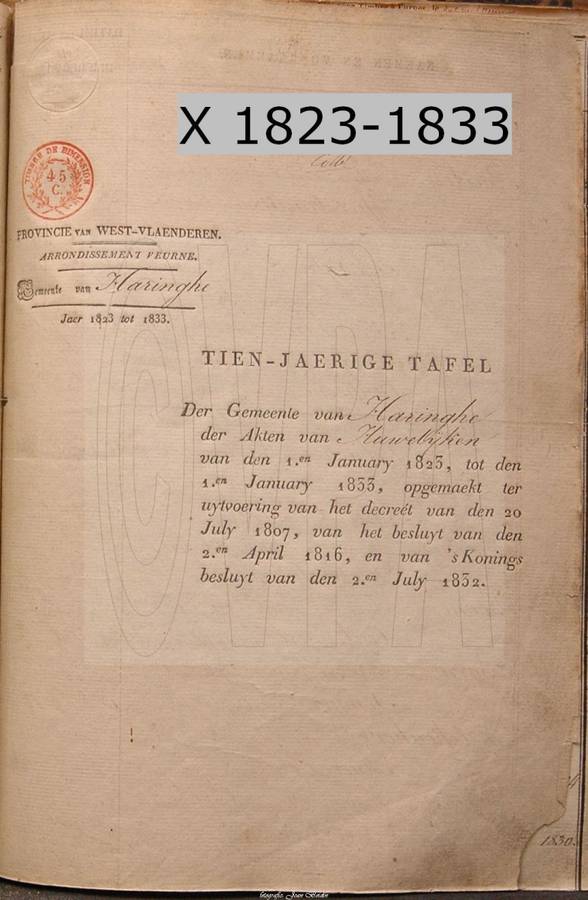 X 1823-1833
TIMBRE DE DIMENSION
45
C.
PROVINCIE VAN WEST-VLAENDEREN.
ARRONDISSEMENT VEURNE.
Gemeente van Haringhe
Jaer 1823 tot 1833.
TIEN-JAERIGE TAFEL
Der Gemeente van Haringhe
der Akten van Huwelyken
van den 1.en January 1823, tot den
1.en January 1833, opgemaekt ter
uytvoering van het decreét van den 20
July 1807, van het besluyt van den
2.en April 1816, en van 's Konings
besluyt van den 2.en July 1832.
1830.
CVRA